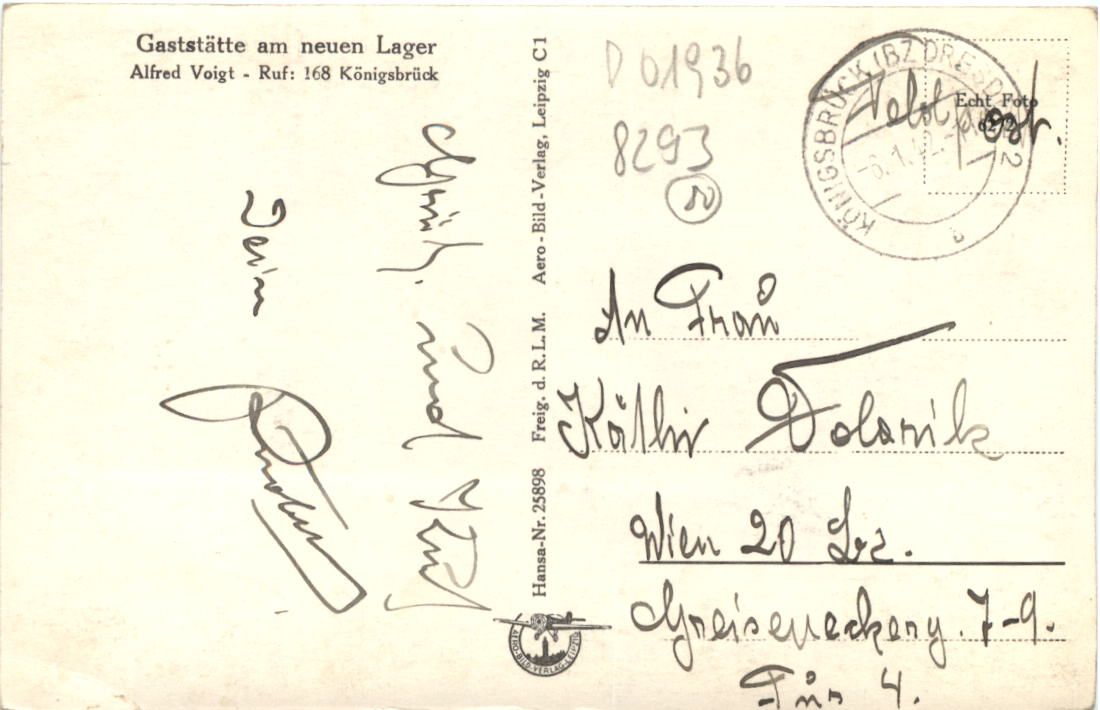 Gaststätte am neuen Lager
Alfred Voigt - Ruf: 168 Königsbrück
Gruß
und Kuß
Dein
Hansa-Nr. 25898 Freig. d. R.L.M. Aero-Bild-Verlag, Leipzig C1
AERO-BILD-VERLAG-LEIPZIG
D 01936
8293
KÖNIGSBRÜCK (BZ DRESDEN) 2
-6.1.42.
Echt Foto
Feldpost.
An Frau
Käthe
Wien 20 Bez.
7-9.
Tür 4.